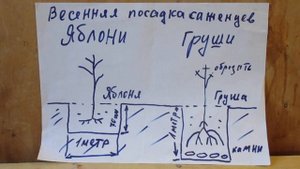 Весенняя посадка саженцев
Яблони
Груши
обрезать
Яблоня
Груша
1 метр
1 метр
камни